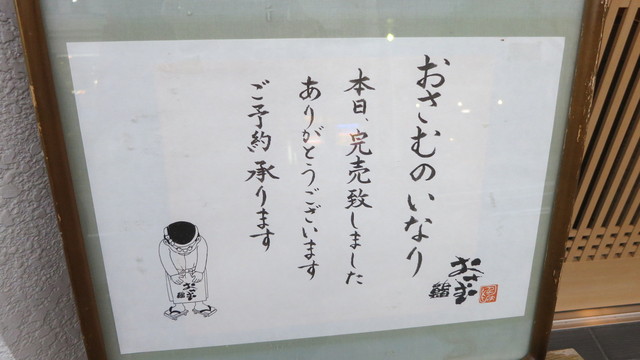 おさむのいなり
本日、完売致しました
ありがとうございます
ご予約承ります
鮨